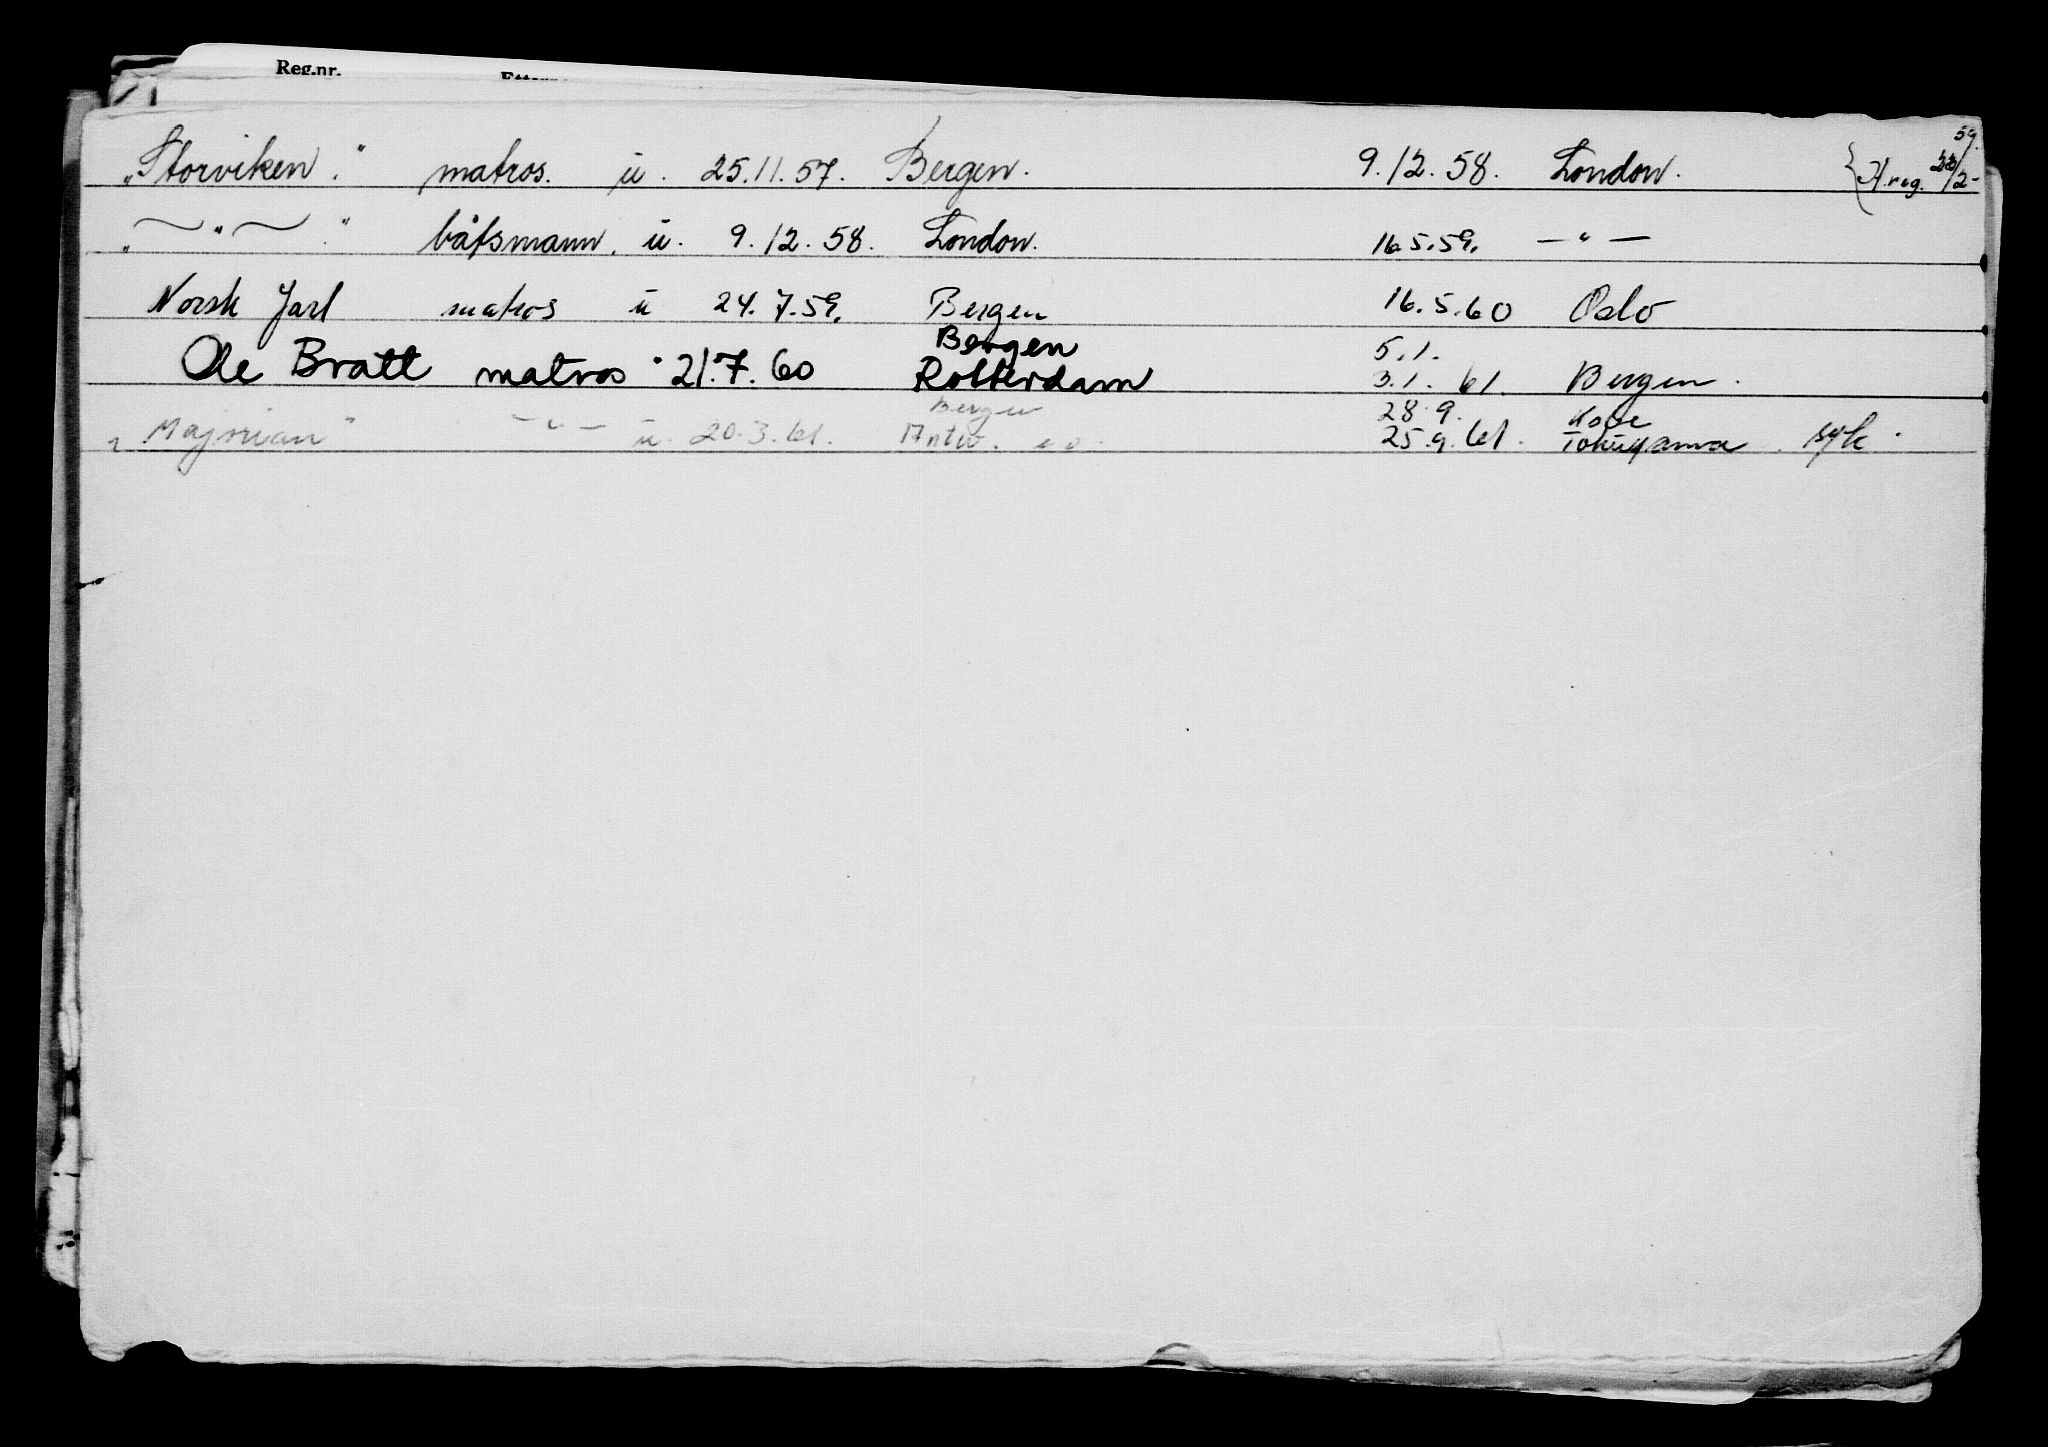 Reg.nr.
„Storviken." matros. u. 25.11.57. Bergen. 9.12.58. London. { H.reg. 23/2-59.
„ — " — " båtsmann. u. 9.12.58. London. 16.5.59. — " —
Norsk Jarl matros u 24.7.59. Bergen 16.5.60 Oslo
Bergen 5.1.
Ole Bratt matros " 21.7.60 Rotterdam 3.1.61. Bergen.
Bergen 28.9. Kobe
„Majorian" — " — u. 20.3.61. Antw. 25.9.61. Tokuyama. syk.